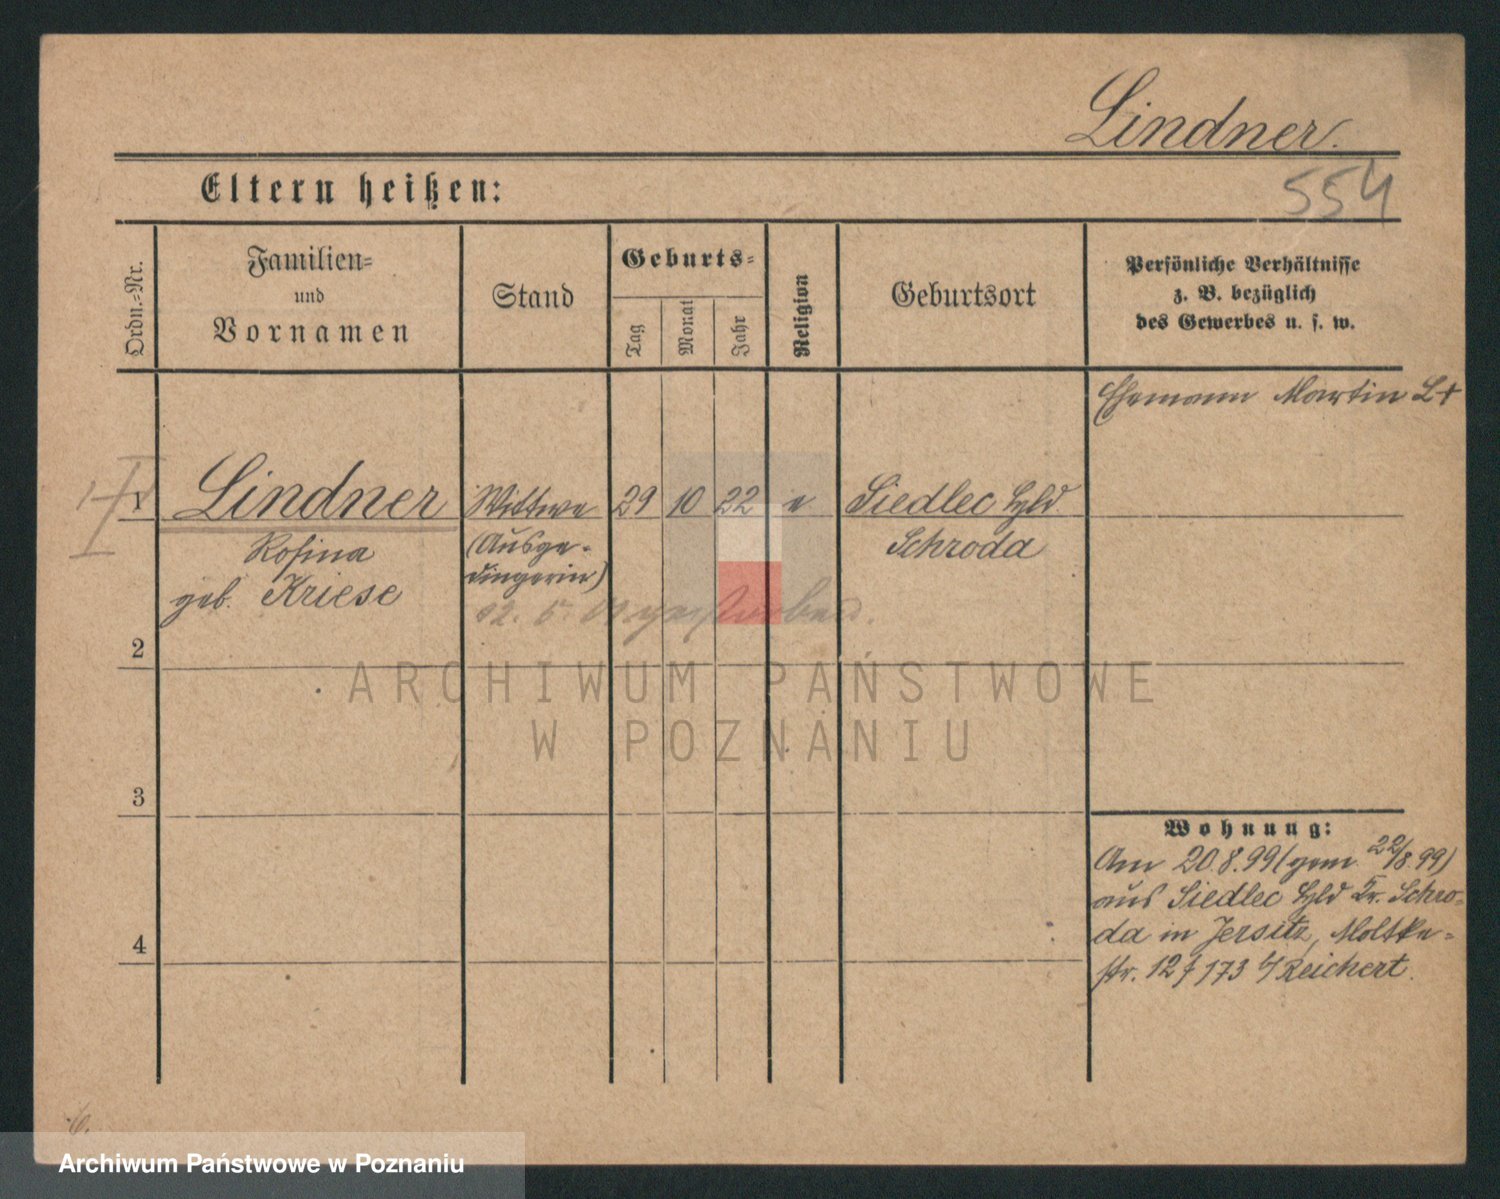 Lindner.
Eltern heißen:
554
Ordn.-Nr.
Familien-
und
Vornamen
Stand
Geburts-
Tag
Monat
Jahr
Religion
Geburtsort
Persönliche Verhältnisse
z. B. bezüglich
des Gewerbes u. s. w.
Ehemann Martin L+
1
Lindner
Wittwe
29
10
22
e
Siedlec Hld
Rosina
(Ausge-
Schroda
geb. Kriese
dingerin)
12. 5. gestorben.
2
ARCHIWUM PAŃSTWOWE
W POZNANIU
3
Wohnung:
Am 20.8.99 (gem 22/8.99)
aus Siedlec Hld Kr. Schro-
da in Jersitz, Moltke-
4
str. 12 173 Reichert.
Archiwum Państwowe w Poznaniu